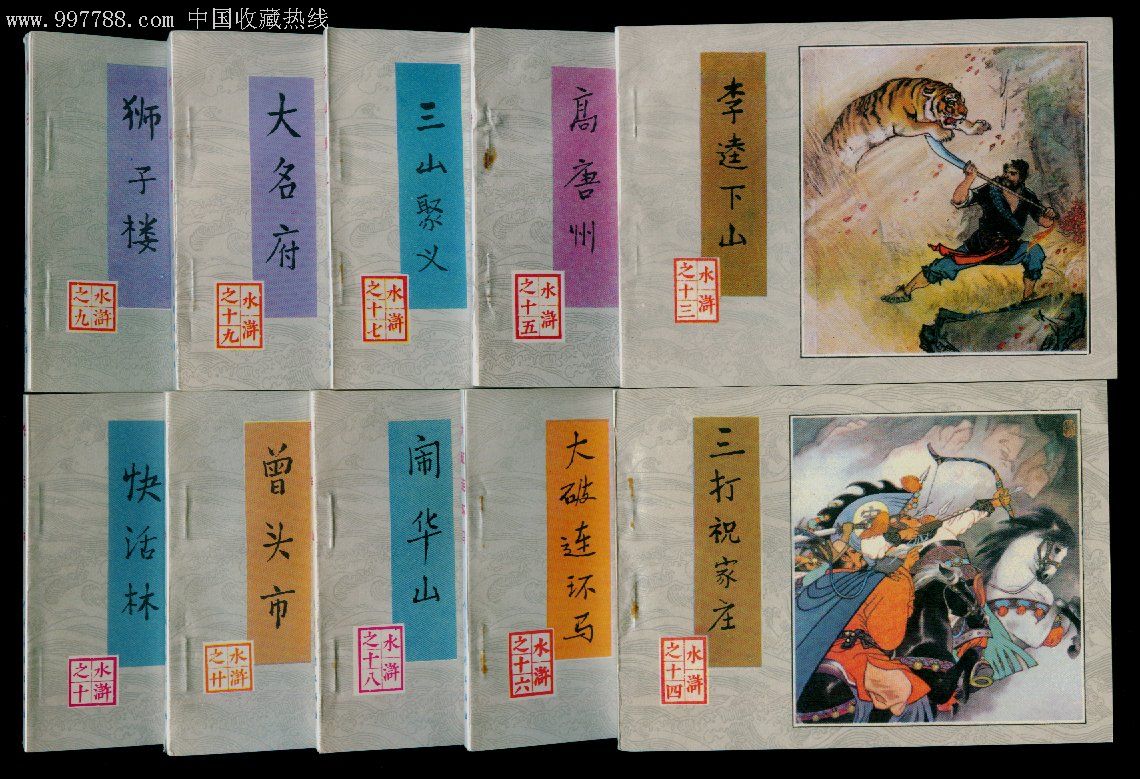 www.997788.com 中国收藏热线
狮子楼
水浒之九
大名府
水浒之十九
三山聚义
水浒之十七
高唐州
水浒之十五
李逵下山
水浒之十三
快活林
水浒之十
曾头市
水浒之廿
闹华山
水浒之十八
大破连环马
水浒之十六
三打祝家庄
水浒之十四